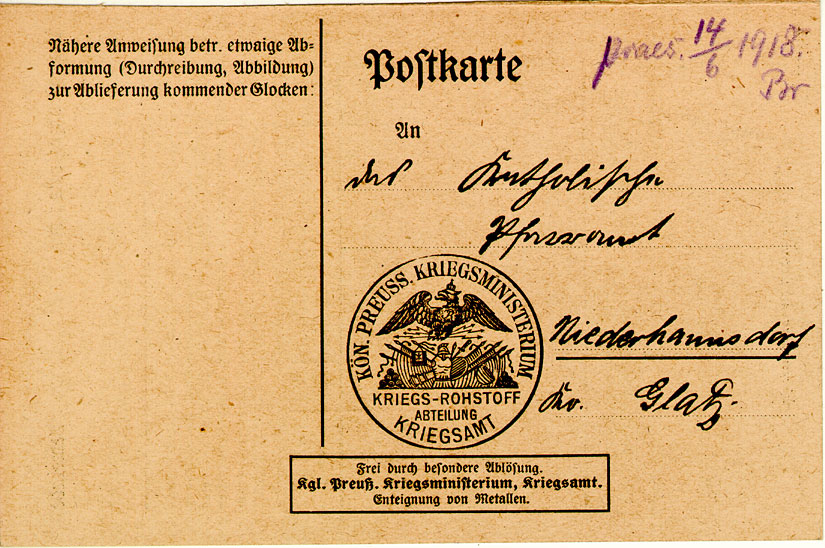 Nähere Anweisung betr. etwaige Ab-
formung (Durchreibung, Abbildung)
zur Ablieferung kommender Glocken:
Postkarte
praes. 14/6 1918.
Br
An
das Katholische
Pfarramt
Niederhannsdorf
Kr. Glatz.
KÖN. PREUSS. KRIEGSMINISTERIUM
KRIEGS-ROHSTOFF
ABTEILUNG
KRIEGSAMT
Frei durch besondere Ablösung.
Kgl. Preuß. Kriegsministerium, Kriegsamt.
Enteignung von Metallen.